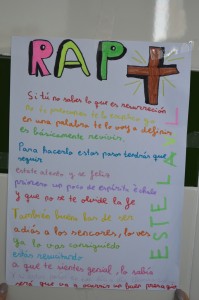 RAP
Si tú no sabes lo que es resurrección
no te preocupes te lo explico yo
en una palabra te lo voy a definir
es básicamente revivir.
Para hacerlo estos pasos tendrás que
seguir
estate atento y se feliz
primero un poco de espíritu échale
y que no se te olvide la fe
También buena has de ser
adiós a los rencores, lo ves
ya lo vas consiguiendo
estás resucitando
a que te sientes genial, lo sabía
será que va a
ESTELA